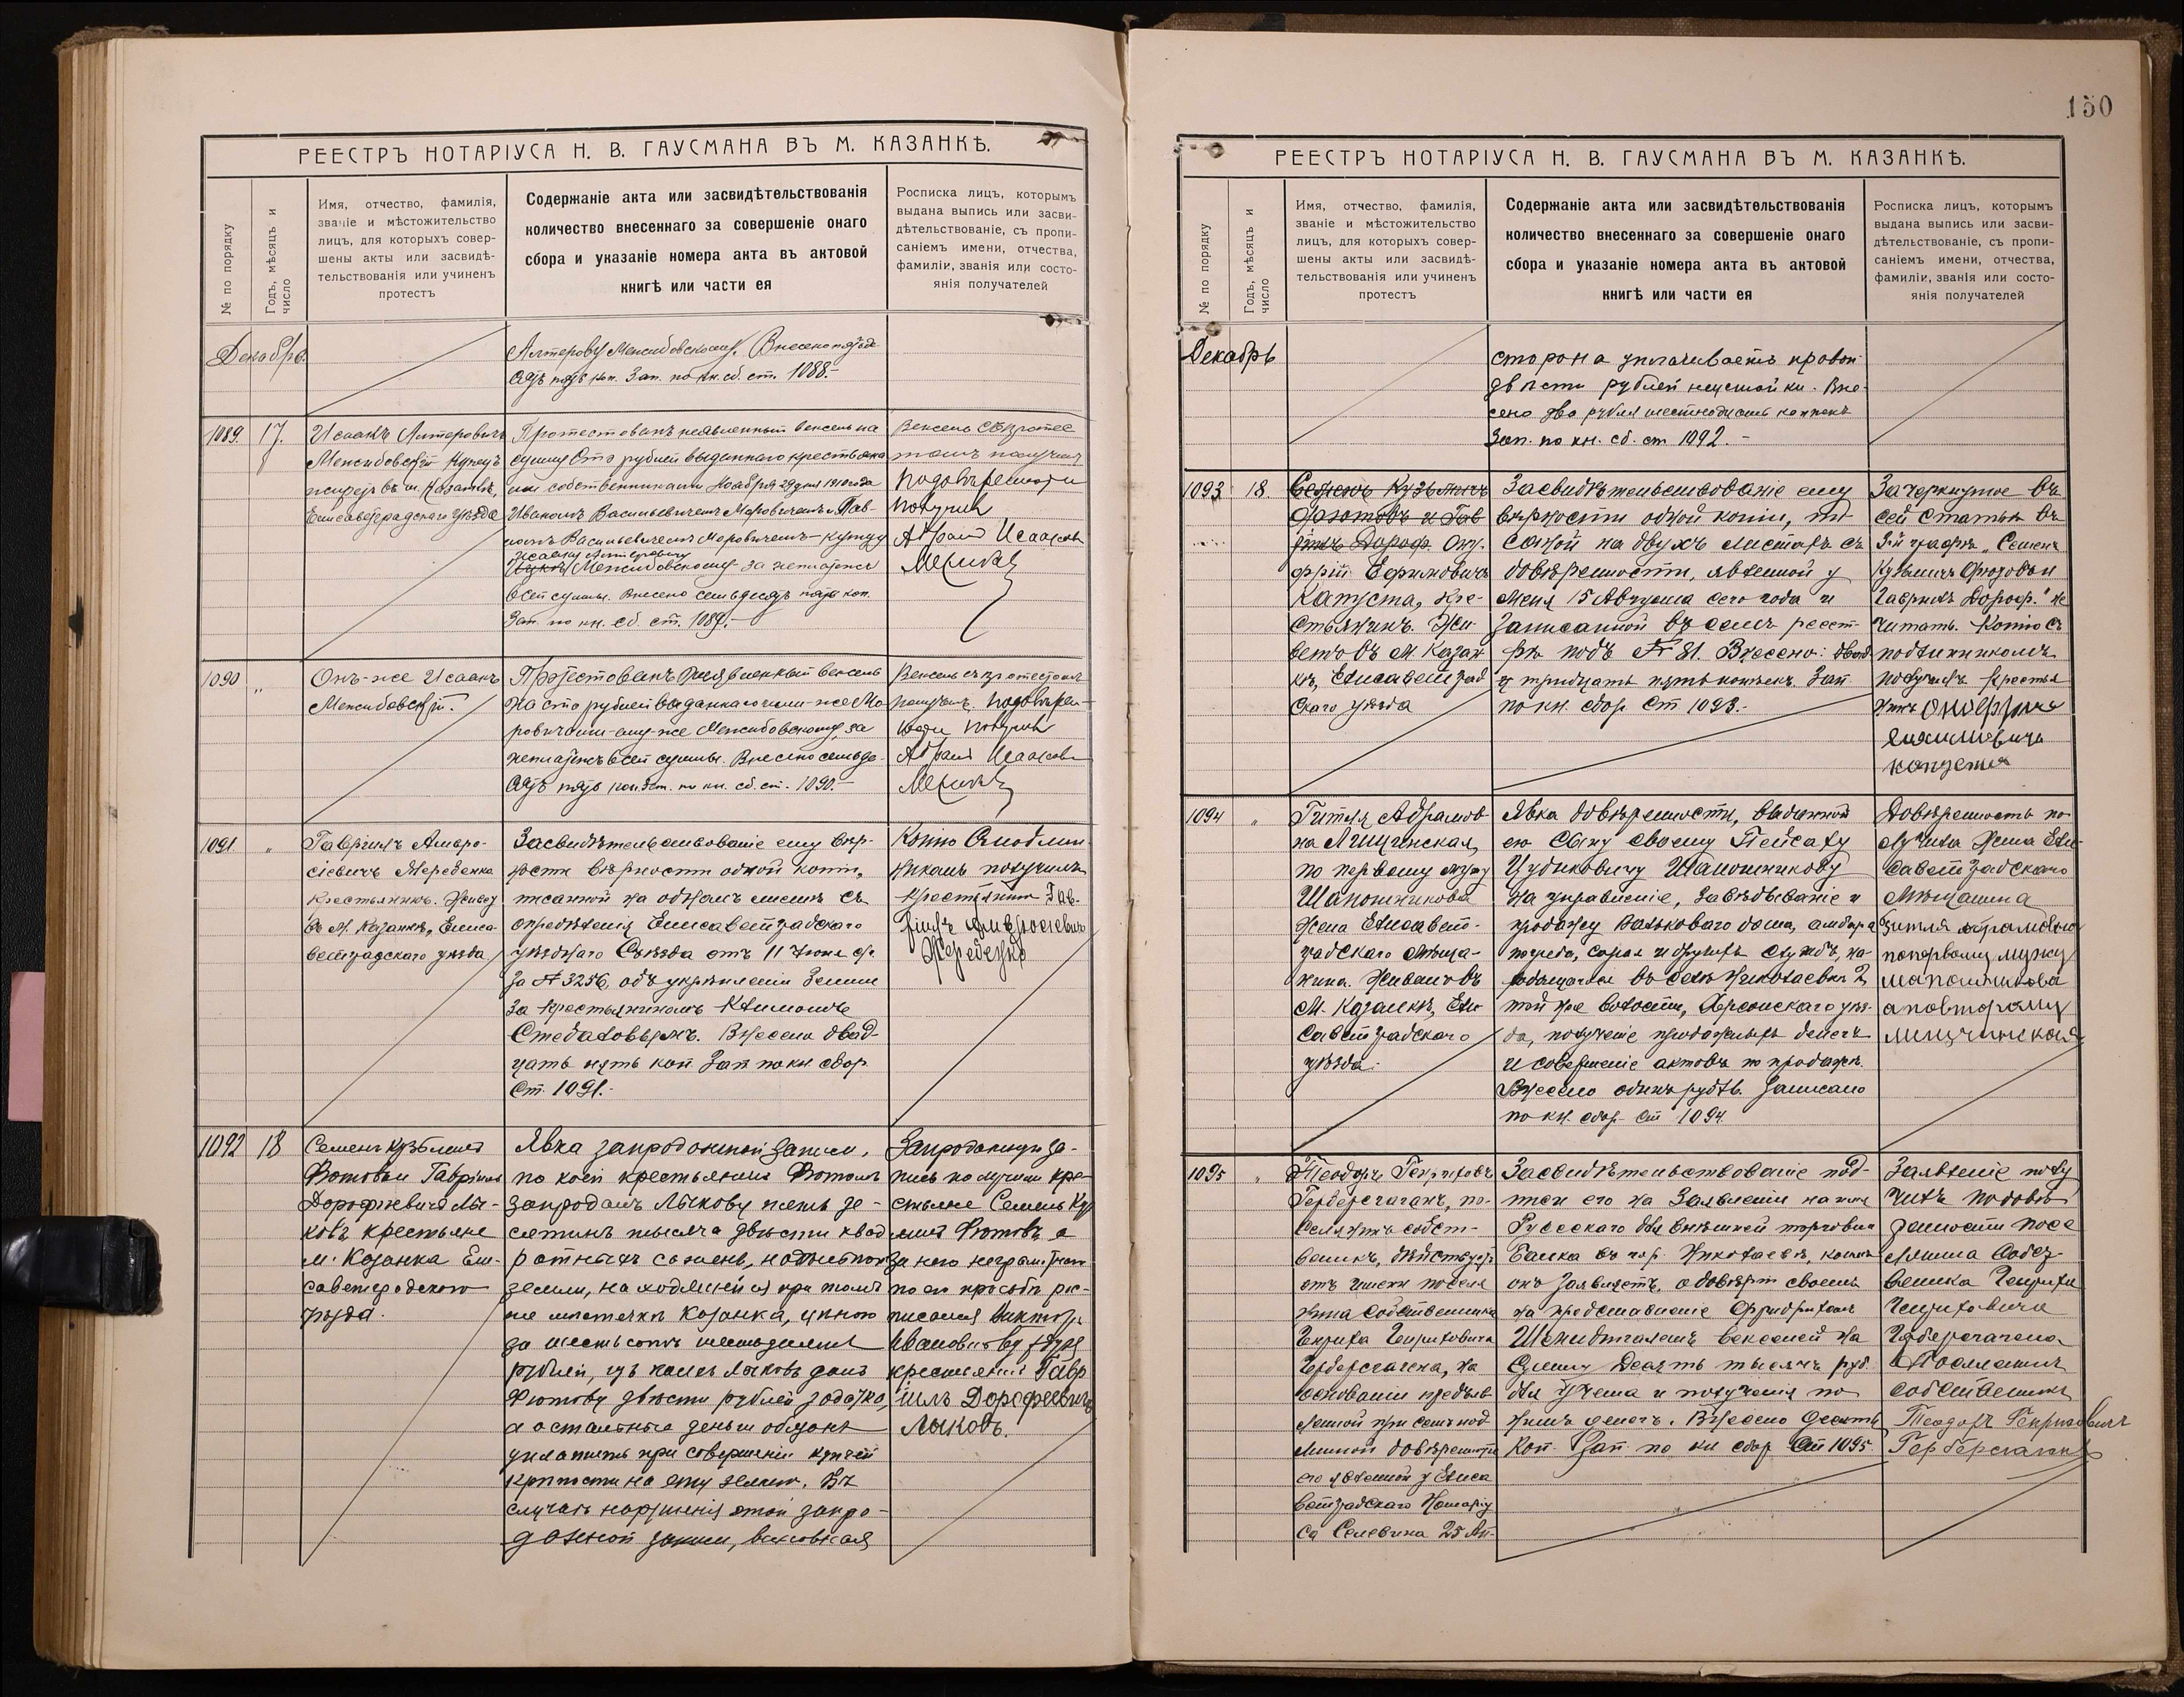 РЕЕСТРЪ НОТАРІУСА Н. В. ГАУСМАНА ВЪ М. КАЗАНКѢ.
№ по порядку
Годъ, мѣсяцъ и
число
Имя, отчество, фамилія,
званіе и мѣстожительство
лицъ, для которыхъ совер-
шены акты или засвидѣ-
тельствованія или учиненъ
протестъ
Содержаніе акта или засвидѣтельствованія
количество внесеннаго за совершеніе онаго
сбора и указаніе номера акта въ актовой
книгѣ или части ея
Росписка лицъ, которымъ
выдана выпись или засви-
дѣтельствованіе, съ пропи-
саніемъ имени, отчества,
фамиліи, званія или состо-
янія получателей
Декабрь.
Алтерову Межибовскому. Внесено
пять коп. Зап. по кн. сб. ст. 1088.-
1089.
17.
Исаакъ Алтеровичъ
Межибовскій Купецъ
живетъ въ м. Казанкѣ,
Елисаветградскаго уѣзда
Протестованъ неявленный вексель на
сумму Сто рублей выданнаго крестьяна
ми собственниками Ноября 29 дня 1910 года
Иваномъ Васильевичемъ Маровичемъ и Пав-
ломъ Васильевичемъ Маровичемъ-купцу
Исааку Алтеровичу
Межибовскому за неплатежъ
всей суммы. Внесено семьдесятъ пять коп.
Зап. по кн. сб. ст. 1089.-
Вексель съ протес
томъ получилъ
По довѣренности
получилъ
Абрамъ Исааков
1090
"
Онъ-же Исаакъ
Межибовскій.
Протестованъ неявленный вексель
на сто рублей выданнаго ими-же Ма
ровичами-ему-же Межибовскому, за
неплатежъ всей суммы. Внесено семьде-
сятъ пять коп. Зап. по кн. сб. ст. 1090.-
Вексель съ протестомъ
получилъ. По довѣрен-
ности получилъ
Абрамъ Исааков
1091
"
Гавріилъ Амвро-
сіевичъ Жеребенко
Крестьянинъ. Живетъ
въ М. Казанкѣ, Елиса-
ветградскаго уѣзда
Засвидѣтельствованіе ему вѣр-
ности вѣрности одной копіи,
писанной на одномъ листѣ съ
опредѣленія Елисаветградскаго
уѣзднаго Съѣзда отъ 11 Іюня с/г.
за № 3256, объ укрѣпленіи Земли
за крестьяниномъ Климомъ
Внесено двад-
цать пять коп. Зап по кн. сбор.
Ст. 1091.-
Копію съ подлин
никомъ получилъ
Крестьянинъ Гав-
ріилъ Амвросіевичъ
Жеребенко
1092
18
Семенъ Кузьмичъ
Фотовъ и Гавріилъ
Дорофѣевичъ Лы-
ковъ крестьяне
м. Казанка Ели-
саветградскаго
уѣзда.
Явка запродажной записи,
по коей крестьянинъ Фотовъ
запродалъ Лыкову пять де-
сятинъ тысяча двѣсти квад
ратныхъ сажень, надѣльной
земли, находящейся при томъ
же мѣстечкѣ Казанка, цѣною
за шестьсотъ шестьдесятъ
рублей, изъ коихъ Лыковъ далъ
Фотову двѣсти рублей задатка,
а остальныя деньги обязанъ
уплатить при совершеніи купчей
крѣпости на эту землю. Въ
случаѣ нарушенія этой запро-
дажной записи, виновная
Запродажную за-
пись получили кре-
стьяне Семенъ Куз
мичъ Фотовъ, а
за него неграмотнаго
по его просьбѣ рос-
писался Викторъ
Ивановичъ
крестьянинъ Гавр
іилъ Дорофеевичъ
Лыковъ.
150
РЕЕСТРЪ НОТАРІУСА Н. В. ГАУСМАНА ВЪ М. КАЗАНКѢ.
№ по порядку
Годъ, мѣсяцъ и
число
Имя, отчество, фамилія,
званіе и мѣстожительство
лицъ, для которыхъ совер-
шены акты или засвидѣ-
тельствованія или учиненъ
протестъ
Содержаніе акта или засвидѣтельствованія
количество внесеннаго за совершеніе онаго
сбора и указаніе номера акта въ актовой
книгѣ или части ея
Росписка лицъ, которымъ
выдана выпись или засви-
дѣтельствованіе, съ пропи-
саніемъ имени, отчества,
фамиліи, званія или состо-
янія получателей
Декабрь
сторона уплачиваетъ правой
двѣсти рублей неустойки. Вне-
сено два рубля шестьдесятъ копѣекъ
Зап. по кн. сб. ст 1092.-
1093
18
Семенъ Кузьмичъ
Фотовъ и Гав
ріилъ Дороф. Ону-
фрій Ефимовичъ
Капуста, кре-
стьянинъ. Жи-
ветъ въ М Казан
кѣ, Елисаветград
скаго уѣзда
Засвидѣтельствованіе ему
вѣрности одной копіи, пи-
санной на двухъ листахъ съ
довѣренности, явленной у
меня 15 Августа сего года и
записанной въ семъ реест-
рѣ подъ № 81. Внесено: двад
ц тридцать пять копѣекъ. Зап
по кн. сбор Ст 1093.-
Зачеркнутое въ
сей статьѣ въ
3-й графѣ „Семенъ
Кузьмичъ Фотовъ и
Гавріилъ Дороф." не
читать. Копію съ
подлинникомъ
получилъ крестья
нинъ
1094
"
Гитля Абрамов
на Лищинская,
по первому мужу
Шапошникова
жена Елисавет-
градскаго мѣща-
нина. Живетъ въ
М. Казанкѣ, Ели
саветградскаго
уѣзда.
Явка довѣренности, выданной
ею сыну своему Пейсаху
Цудиковичу Шапошникову
на управленіе, завѣдываніе и
продажу вальковаго дома, амбара
погреба, сарая и другихъ службъ, на-
ходящихся въ селѣ Николаевкѣ 2,
той же волости, Херсонскаго уѣз-
да, полученіе продажныхъ денегъ
и совершеніе актовъ по продажѣ.
Внесено одинъ рубль. Записано
по кн. сбор. Ст 1094.
Довѣренность по-
лучила жена Ели
саветградскаго
мѣщанина
Гитля Абрамовна
по первому мужу
Шапошникова
а по второму
Лищинская
1095
"
Теодоръ Генриховъ
Герберсгагенъ, по-
селянинъ собст-
венникъ, дѣйствующ.
отъ имени поселя
нина собственника
Генриха Генриховича
Герберсгагена, на
основаніи предъяв-
ленной при семъ под
линной довѣренности
его явленной у Елиса
ветградскаго Нотаріу
са Селевина 25 Ап-
Засвидѣтельствованіе под-
писи его на Заявленіи на имя
Русскаго для внѣшней торговли
Банка въ гор. Николаевѣ, коимъ
онъ заявляетъ, о довѣріи своемъ
на предоставленіе Фридрихомъ
векселей на
Сумму десять тысячъ руб.
для учета и полученія по
нимъ денегъ. Внесено десять
Коп. Зап. по кн сбор Ст 1095
Заявленіе полу
чилъ по довѣ
ренности посе
лянина Собст-
венника Генриха
Генриховича
Герберсгагена
Поселянинъ
собственникъ
Теодоръ Генриховичъ
Герберсгагенъ